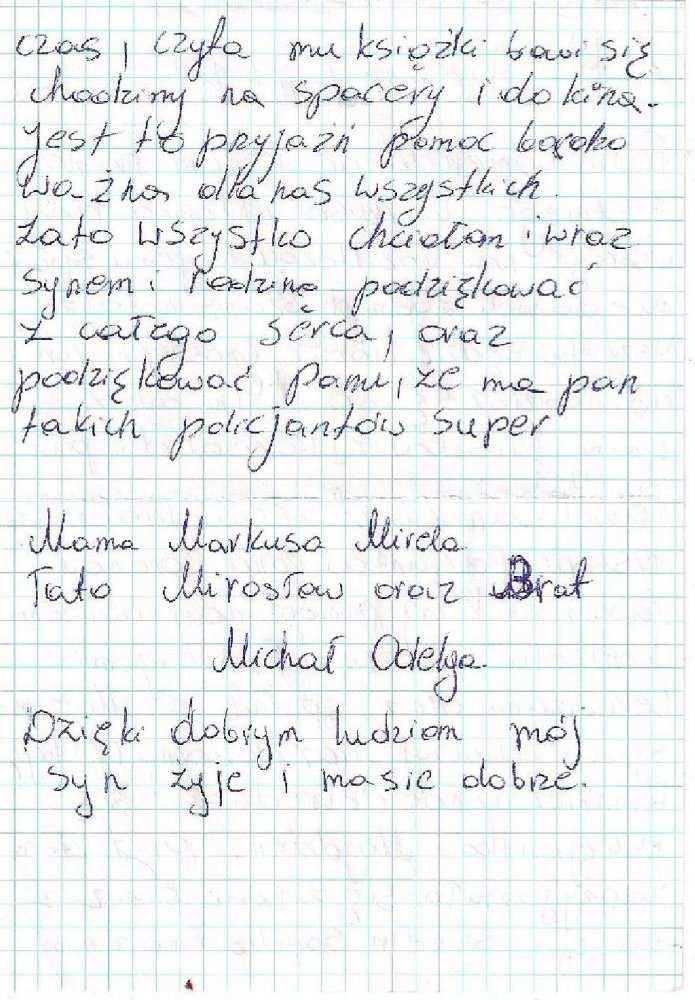 czas, czyta mu książki bawi się
chodzimy na spacery i do kina.
jest to pryjaźń pomoc bardzo
ważna dla nas wszystkich.
Zato wszystko chciałam i wraz
synem i rodziną podziękować
z całego serca, oraz
podziękować Panu, że ma pan
takich policjantów super
Mama Markusa Mirela
Tato Mirosław oraz Brat
Michał Odelga.
Dzięki dobrym ludziom mój
syn żyje i masie dobrze.